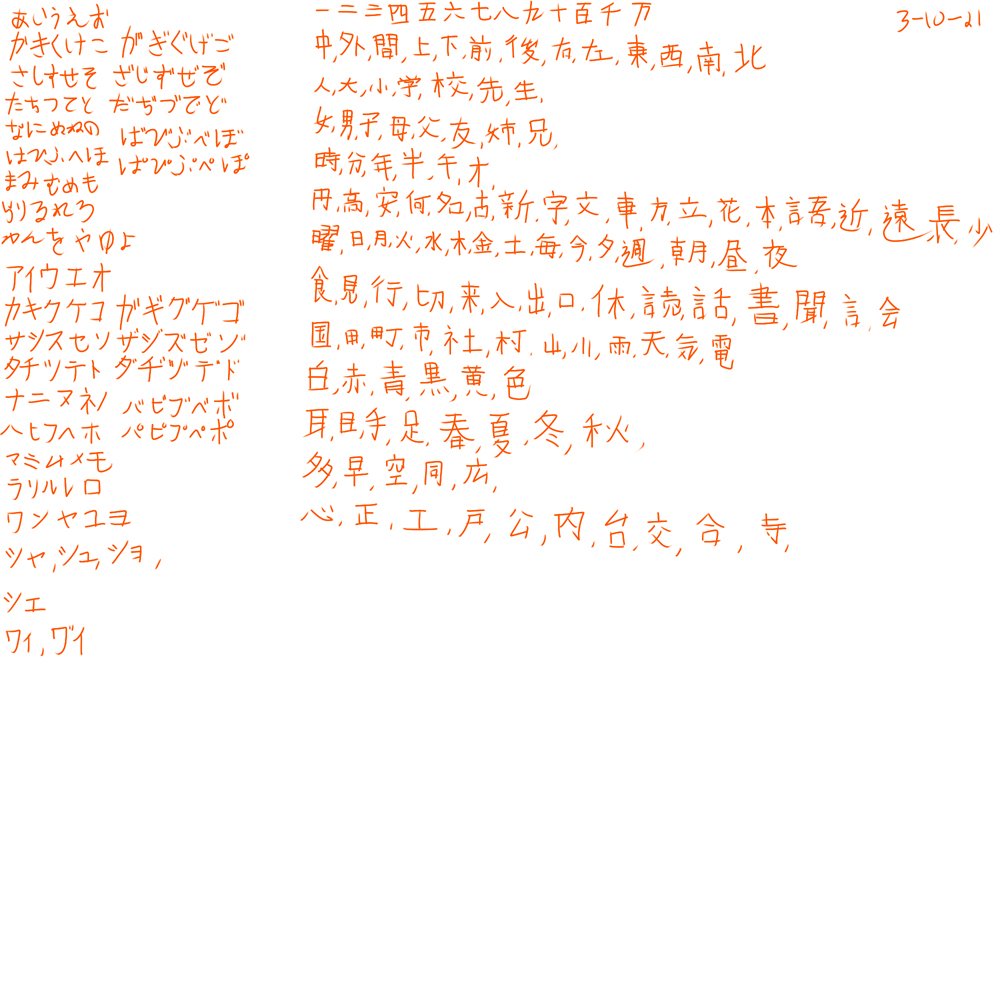 3-10-21
あいうえお
かきくけこ がぎぐげご
さしすせそ ざじずぜぞ
たちつてと だぢづでど
なにぬねの ばびぶべぼ
はひふへほ ぱぴぷぺぽ
まみむめも
らりるれろ
わんをやゆよ
アイウエオ
カキクケコ ガギグゲゴ
サシスセソ ザジズゼゾ
タチツテト ダヂヅデド
ナニヌネノ バビブベボ
ハヒフヘホ パピプペポ
マミムメモ
ラリルレロ
ワンヤユヨ
シャ,シュ,ショ,
シエ
ワィ,ヷイ
一二三四五六七八九十百千万
中,外,間,上,下,前,後,右,左,東,西,南,北
人,大,小,学,校,先,生,
女,男,子,母,父,友,姉,兄,
時,分,年,半,午,才,
円,高,安,何,名,古,新,字,文,車,方,立,花,本,語,近,遠,長,少
曜,日,月,火,水,木,金,土,毎,今,夕,週,朝,昼,夜
食,見,行,切,来,入,出,口,休,読,話,書,聞,言,会
国,田,町,市,社,村,山,川,雨,天,気,電
白,赤,青,黒,黄,色
耳,目,手,足,春,夏,冬,秋,
多,早,空,同,広,
心,正,工,戸,公,内,台,交,合,寺,